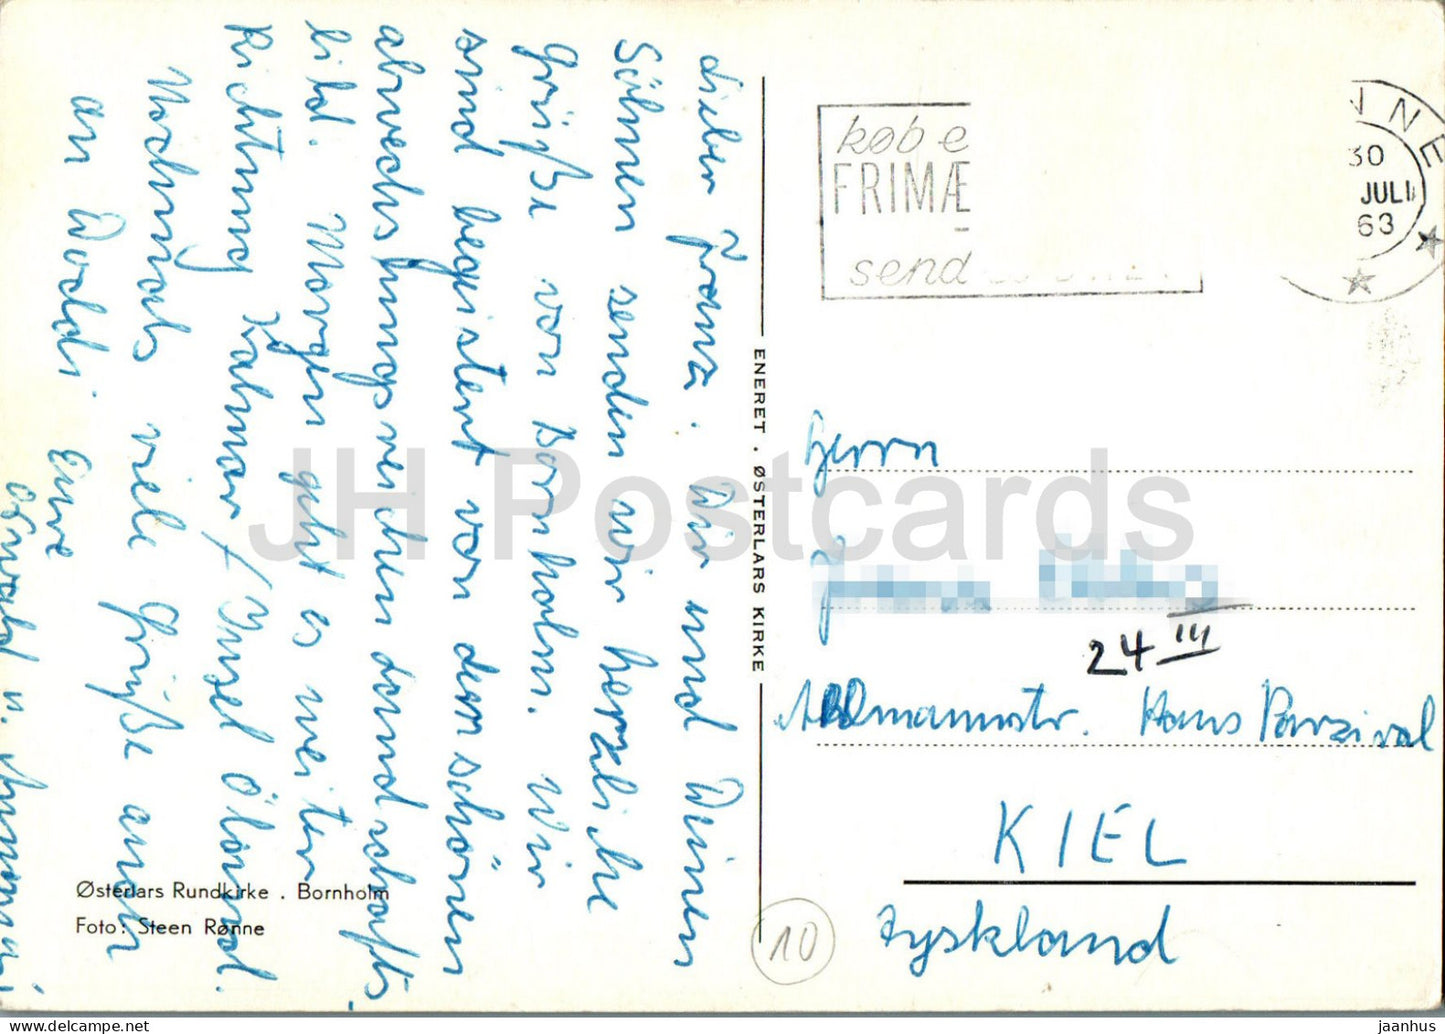 Lieber Franz. Dir und Deinen
Söhnen senden wir herzliche
Grüße von Bornholm. Wir
sind begeistert von dem schönen
abwechslungsreichen Landschafts
bild. Morgen geht es weiter
Richtung Kalmar / Insel Öland.
Nochmals viele Grüße auch
an Waldi. Eure
Oswald u. Annemari
Østerlars Rundkirke . Bornholm
Foto: Steen Rønne
ENERET . ØSTERLARS KIRKE
købe
FRIMÆ
send
NNE
30
JULI
63
Herrn
24 III
Hans Parzival
KIEL
Tyskland
10
JH Postcards
jaanhus